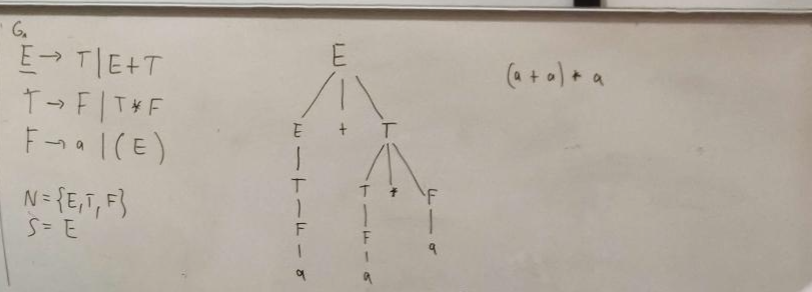 G.
E → T | E + T
T → F | T * F
F → a | ( E )
N = {E, T, F}
S = E
E
E + T
T T * F
F F a
a a
(a + a) * a